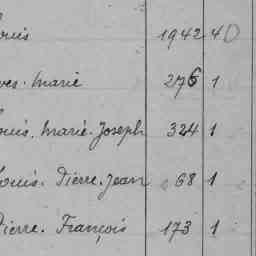 ouis 1942 40
ves. Marie 276 1
ouis. Marie. Joseph 324 1
ouis. Pierre. Jean 68 1
Pierre. François 173 1